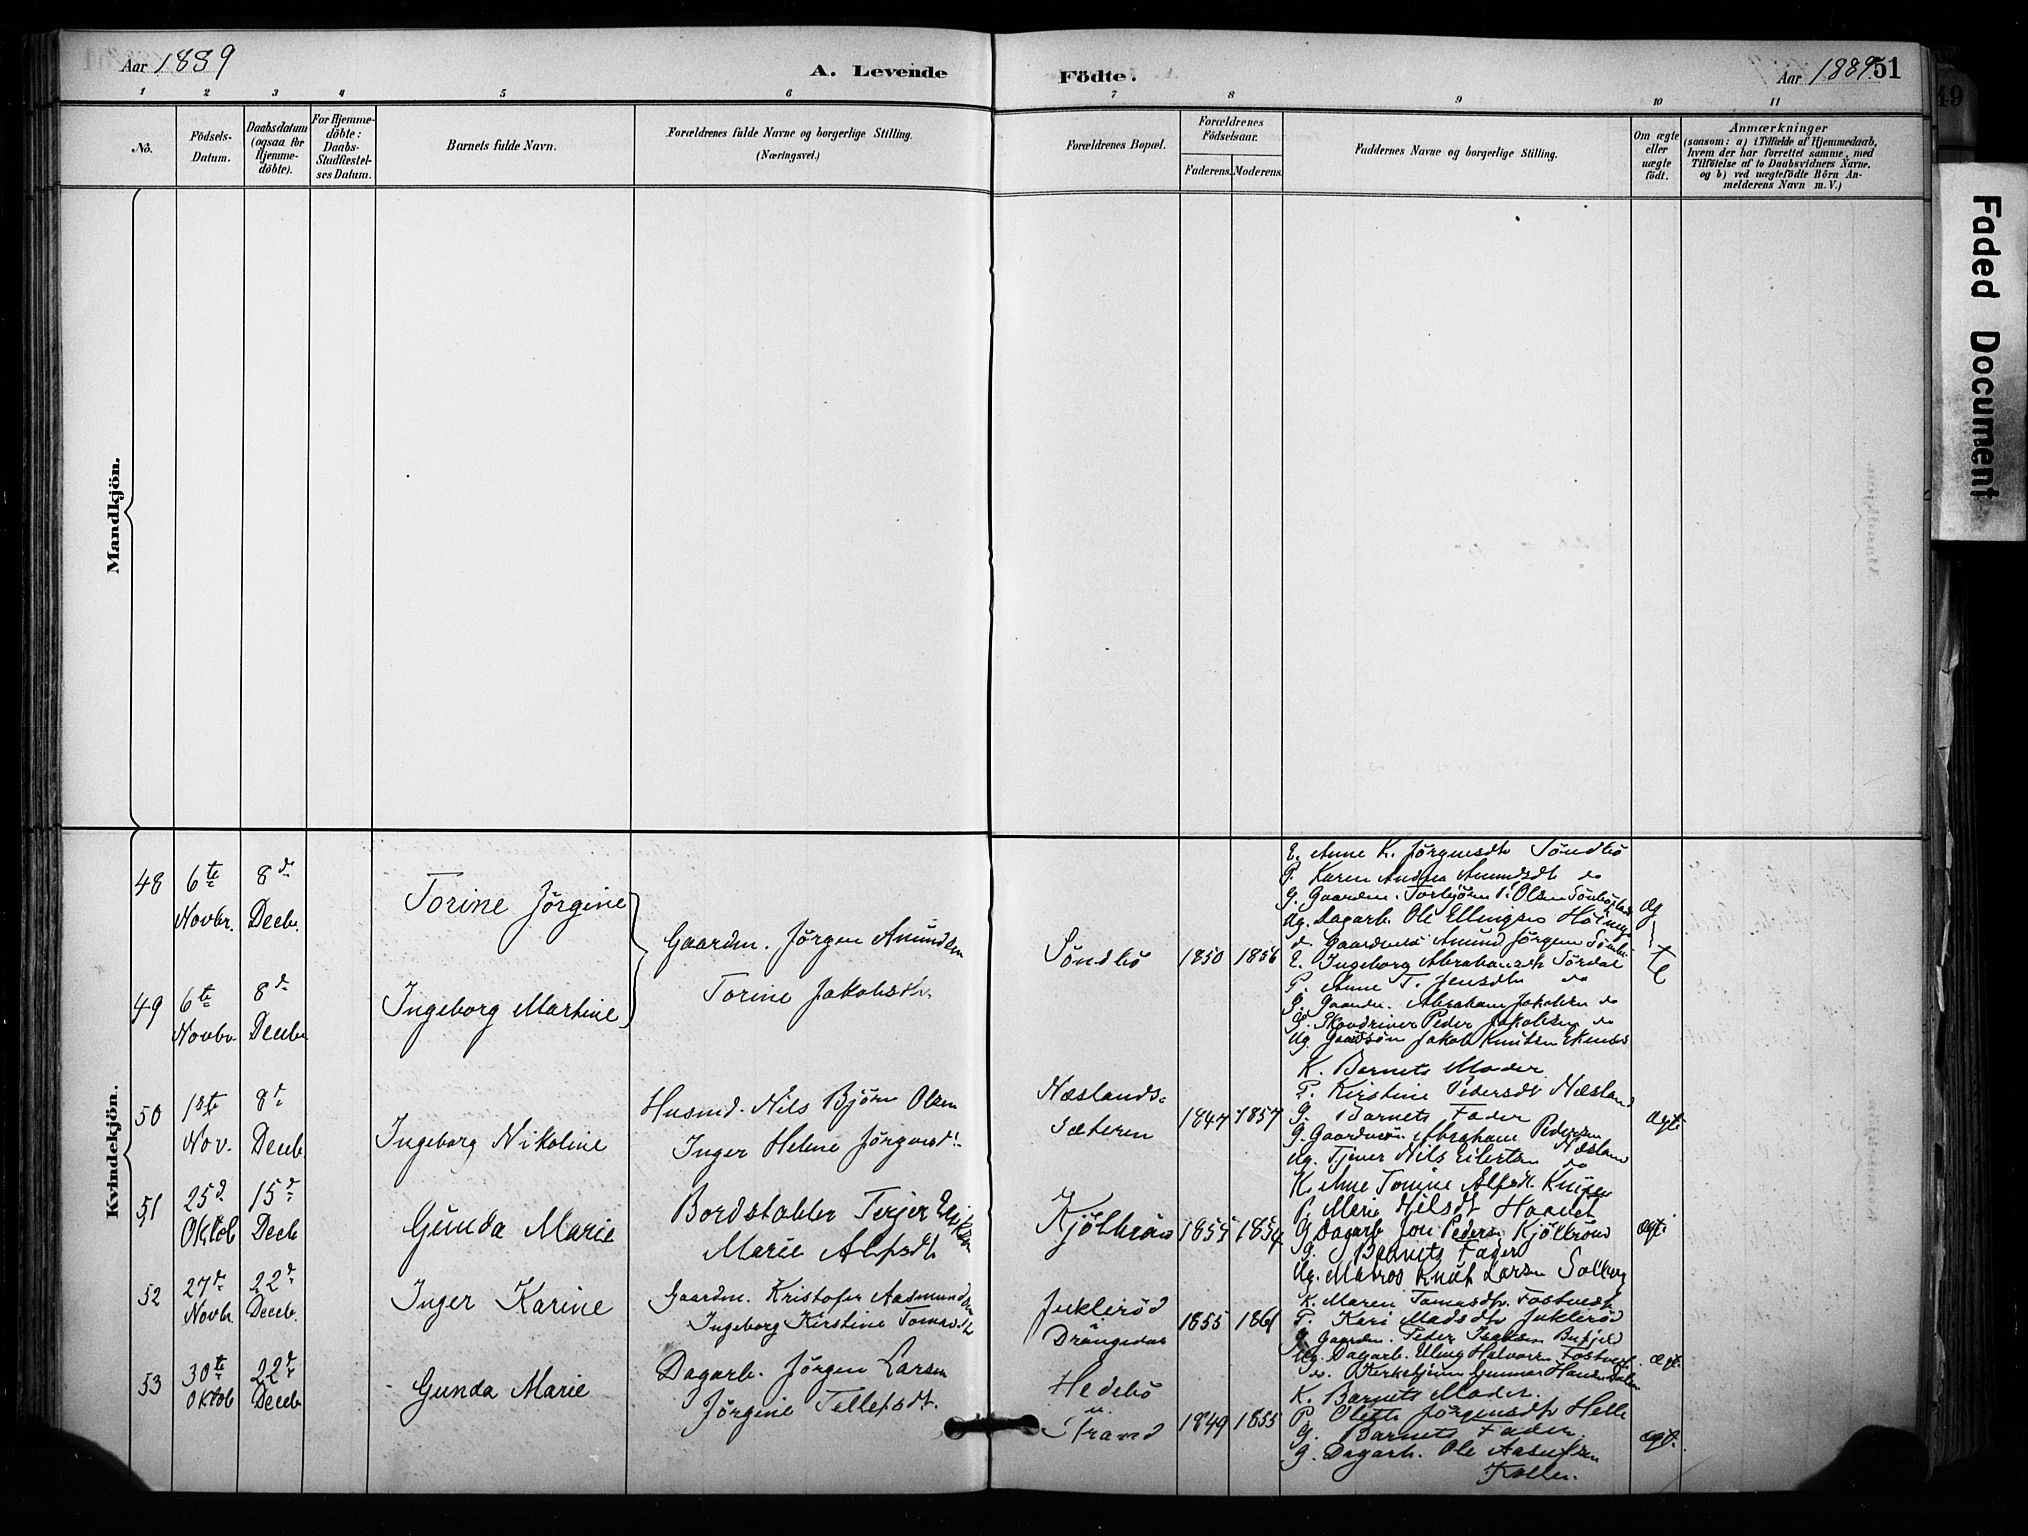 Aar 1889
A. Levende
Födte.
Aar 1889.
51
49
1 2 3 4 5 6 7 8 9 10 11
No.
Födsels-
Datum.
Daabsdatum
(ogsaa for
Hjemme-
döbte).
For Hjemme-
döbte:
Daabs-
Stadfæstel-
ses Datum.
Barnets fulde Navn.
Forældrenes fulde Navne og borgerlige Stilling.
(Næringsvei.)
Forældrenes Bopæl.
Forældrenes
Födselsaar.
Faderens.
Moderens.
Faddernes Navne og borgerlige Stilling.
Om ægte
eller
uægte
födt.
Anmærkninger
(saasom: a) i Tilfælde af Hjemmedaab,
hvem der har forrettet samme, med
Tilföielse af to Daabsvidners Navne.
og b) ved uægtefödte Börn An-
melderens Navn m. V.)
Faded Document
Mandkjön.
Kvindekjön.
48
6te
Novbr.
8d
Decb.
Torine Jörgine
Gaardm. Jörgen Amundsen
Torine Jakobsdtr.
Söndbö
1850
1856
E. Anne K. Jörgensdtr Söndbö
P. Karen Andrea Amundsdt do
G. Gaardm. Torbjörn Olsen
Ug. Dagarb. Ole Ellingsen
d. Amund Jörgensen
Ægte
49
6te
Novbr
8d
Decbr
Ingeborg Martine
E. Ingeborg Abrahamsdtr Tördal
P. Anne T. Jensdtr do
G. Gaardm. Abraham Jakobsen do
G. Skovdriver Peder Jakobsen do
Ug. Gaardsön Jakob Knutsen
50
18te
Nov.
8d
Decb.
Ingeborg Nikoline
Husmd. Nils Björn Olsen
Inger Helene Jörgensdt.
Næslands-
Sæteren
1847
1857
K. Barnets Moder.
P. Kirstine Pedersdt Næsland
G. Barnets Fader
G. Abraham Pedersen
Næsland
Ug. Tjener Nils Eilertsen do
ægte
51
25d
Oktob
15d
Decb
Gunda Marie
Bordstabler Terjer
Marie Alfsdt
Kjölbrönd
1855
1854
K. Ane Tonine Alfsdt. Knipen
P. Marie Nilsdt Haadet
G. Dagarb. Jon Peders. Kjölbrönd
G. Barnets Fader
Ug. Matros Knut Larsen Solberg
ægt.
52
27d
Novbr
22d
Decb.
Inger Karine
Gaardm. Kristofer Aasmundsen
Ingeborg Kirstine Tomasdt
Jukleröd
i
Drangedal
1855
1861
K. Maren Tomasdtr. Fostvedt
P. Kari Madsdtr Jukleröd
G. Gaardm. Peder Isaksen
Ug. Dagarb. Elling Halvorsen Fostvedt
do. Gunnar Hansen
ægt.
53
30te
Oktob
22d
Decbr
Gunda Marie
Dagarb. Jörgen Larsen
Jörgine Tellefsdt.
Hedebö
u.
Strand
1849
1855
K. Barnets Moder.
P. Olette Jörgensdtr Helle
G. Barnets Fader.
G. Dagarb. Ole
ægt.